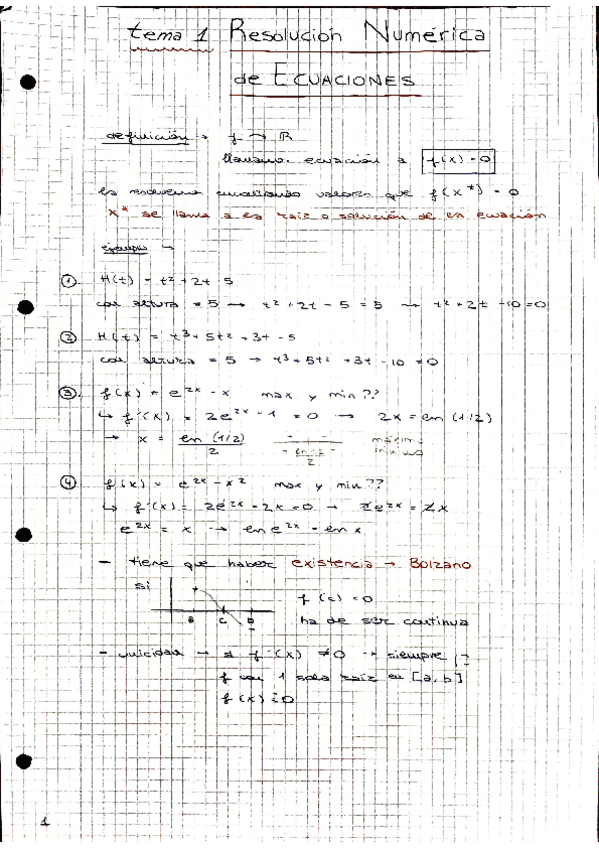 tema 1 Resolución Numérica
de ECUACIONES
definición → f → ℝ
llamamos ecuación a f(x) = 0
la resolvemos encontrando valores que f(x*) = 0
x* se llama a la raíz o solución de la ecuación
ejemplo →
① H(t) = t² + 2t - 5
con altura = 5 → t² + 2t - 5 = 5 → t² + 2t - 10 = 0
② H(t) = t³ + 5t² + 3t - 5
con altura = 5 → t³ + 5t² + 3t - 10 = 0
③ f(x) = e^2x - x max y min ??
↳ f'(x) = 2e^2x - 1 = 0 → 2x = ln (1/2)
→ x = ln (1/2) / 2 máximo
mínimo
④ f(x) = e^2x - x² max y min ??
↳ f'(x) = 2e^2x - 2x = 0 → 2e^2x = 2x
e^2x = x → ln e^2x = ln x
- tiene que haber existencia → Bolzano
si
f(c) = 0
a c b ha de ser continua
- unicidad → si f'(x) ≠ 0 → siempre
f con 1 sola raíz en [a, b]
f(x) = 0
1